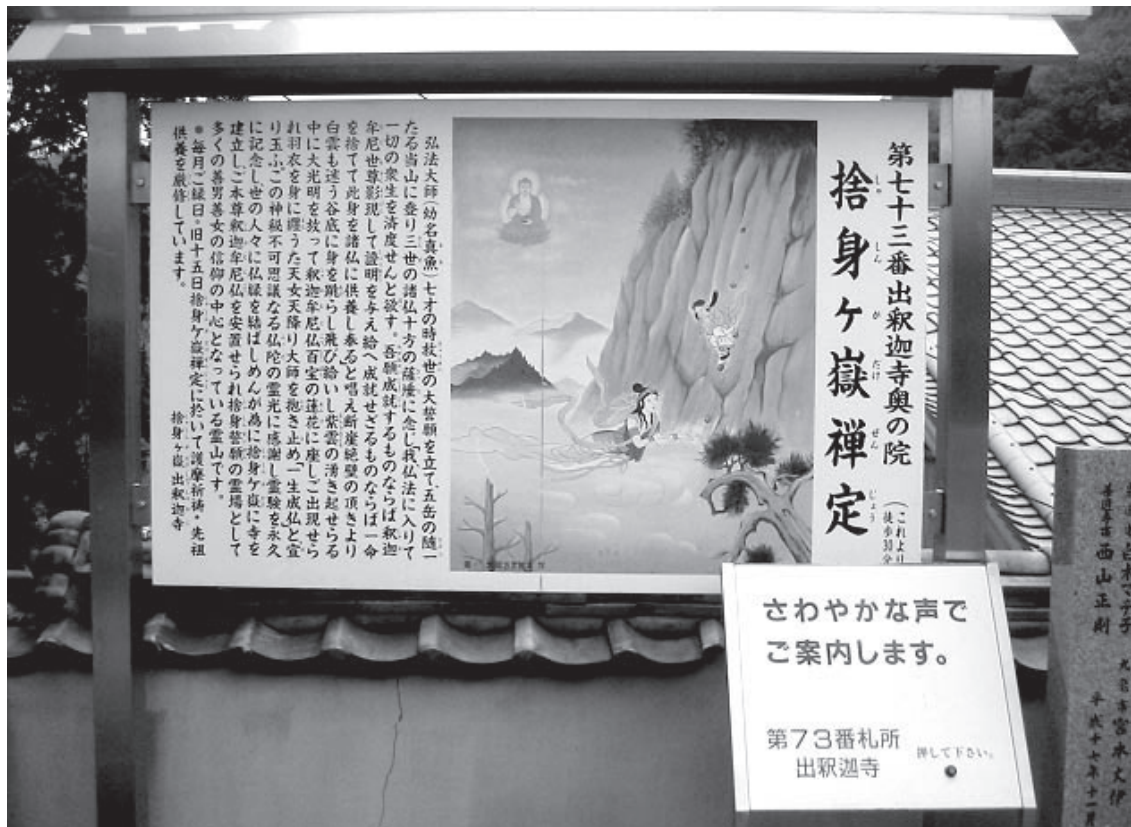 第七十三番出釈迦寺奥の院
捨身ヶ嶽禅定
しゃしんがたけぜんじょう
（これより
徒歩30分
弘法大師（幼名真魚）七才の時救世の大誓願を立て、五岳の随一
たる当山に登り三世の諸仏十方の薩埵に念じ「我仏法に入りて
一切の衆生を済度せんと欲す。吾願成就するものならば釈迦
牟尼世尊影現して證明を与え給へ成就せざるものならば一命
を捨てて此身を諸仏に供養し奉ると唱え断崖絶壁の頂きより
白雲も迷う谷底に身を跳らし飛び給いし紫雲の湧き起せらる
中に大光明を放って釈迦牟尼仏百宝の蓮花に座しご出現せら
れ羽衣を身に纒うた天女天降り大師を抱き止め「一生成仏」と宣
り玉ふこの神秘不可思議なる仏陀の霊光に感謝し霊験を永久
に記念し世の人々に仏縁を結ばしめんが為に捨身ヶ嶽に寺を
建立し、ご本尊釈迦牟尼仏を安置せられ捨身誓願の霊場として
多くの善男善女の信仰の中心となっている霊山です。
＊毎月ご縁日。旧十五日捨身ケ嶽禅定に於いて護摩祈祷・先祖
供養を厳修しています。
捨身ヶ嶽 出釈迦寺
さわやかな声で
ご案内します。
第73番札所
出釈迦寺
押して下さい。
西山正則
平成十七年十一月